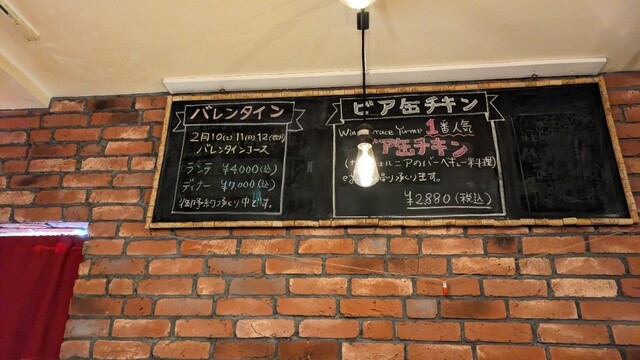 バレンタイン
2月10(土)11(日)12(祝月)
バレンタインコース
ランチ ¥4,000(込)
ディナー ¥7,000(込)
御予約承り中です。
ビア缶チキン
1番人気
ビア缶チキン
ニアのバーベキュー料理)
承ります。
¥2,880(税込)